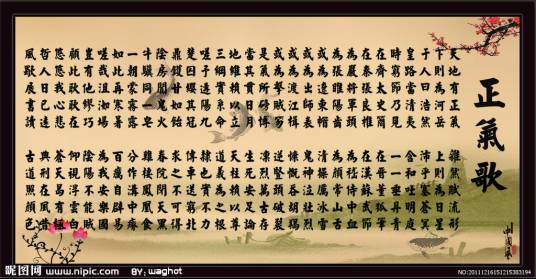 正氣歌
天地有正氣 雜然賦流形
下則為河岳 上則為日星
于人曰浩然 沛乎塞蒼冥
皇路當清夷 含和吐明庭
時窮節乃見 一一垂丹青
在齊太史簡 在晉董狐筆
在秦張良椎 在漢蘇武節
為嚴將軍頭 為嵇侍中血
為張睢陽齒 為顏常山舌
或為遼東帽 清操厲冰雪
或為出師表 鬼神泣壯烈
或為渡江楫 慷慨吞胡羯
或為擊賊笏 逆豎頭破裂
是氣所磅礴 凜烈萬古存
當其貫日月 生死安足論
地維賴以立 天柱賴以尊
三綱實系命 道義為之根
嗟予遘陽九 隸也實不力
楚囚纓其冠 傳車送窮北
鼎鑊甘如飴 求之不可得
陰房闃鬼火 春院閉天黑
牛驥同一皂 雞棲鳳凰食
一朝蒙霧露 分作溝中瘠
如此再寒暑 百癘自辟易
嗟哉沮洳場 為我安樂國
豈有他繆巧 陰陽不能賊
顧此耿耿在 仰視浮雲白
悠悠我心悲 蒼天曷有極
哲人日已遠 典刑在夙昔
風檐展書讀 古道照顏色
中國風
昵图网 www.nipic.com
BY: waghot
NO:20111216151215383194